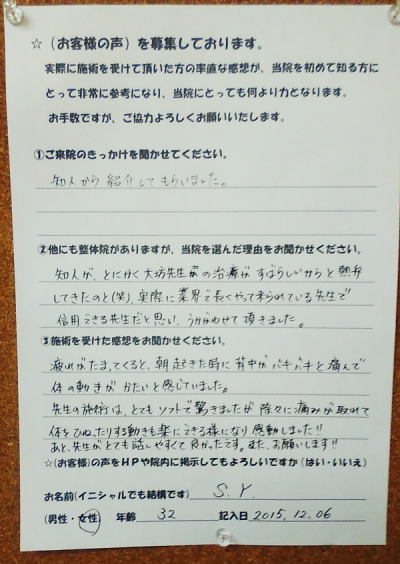 ☆（お客様の声）を募集しております。
実際に施術を受けて頂いた方の率直な感想が、当院を初めて知る方に
とって非常に参考になり、当院にとっても何より力となります。
お手数ですが、ご協力よろしくお願いいたします。
①ご来院のきっかけを聞かせてください。
知人から紹介してもらいました。
②他にも整体院がありますが、当院を選んだ理由をお聞かせください。
知人が、とにかく大坊先生の治療がすばらしいからと熱弁
してきたのと(笑)、実際に業界で長くやって来られている先生で
信用できる先生だと思い、うかがわせて頂きました。
③施術を受けた感想をお聞かせください。
疲れがたまってくると、朝起きた時に背中がバキバキと痛んで
体の動きがかたいと感じていました。
先生の施術は、とてもソフトで驚きましたが除々に痛みが取れて
体をひねったりする動きも楽にできる様になり感動しました!!
あと、先生がとても話しやすくて良かったです。また、お願いします!!
☆（お客様）の声をＨＰや院内に掲示してもよろしいですか（はい・いいえ）
お名前(イニシャルでも結構です) S.Y.
(男性・女性) 年齢 32 記入日 2015.12.06